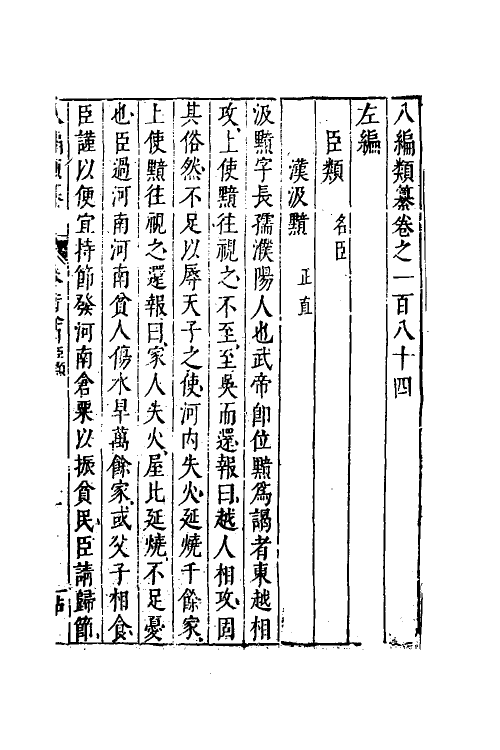 八編類纂卷之一百八十四
左編
臣類 名臣
漢汲黯 正直
汲黯字長孺濮陽人也武帝卽位黯爲謁者東越相
攻上使黯往視之不至至吳而還報曰越人相攻固
其俗然不足以辱天子之使河內失火延燒千餘家
上使黯往視之還報曰家人失火屋比延燒不足憂
也臣過河南河南貧人傷水旱萬餘家或父子相食
臣謹以便宜持節發河南倉粟以振貧民臣請歸節